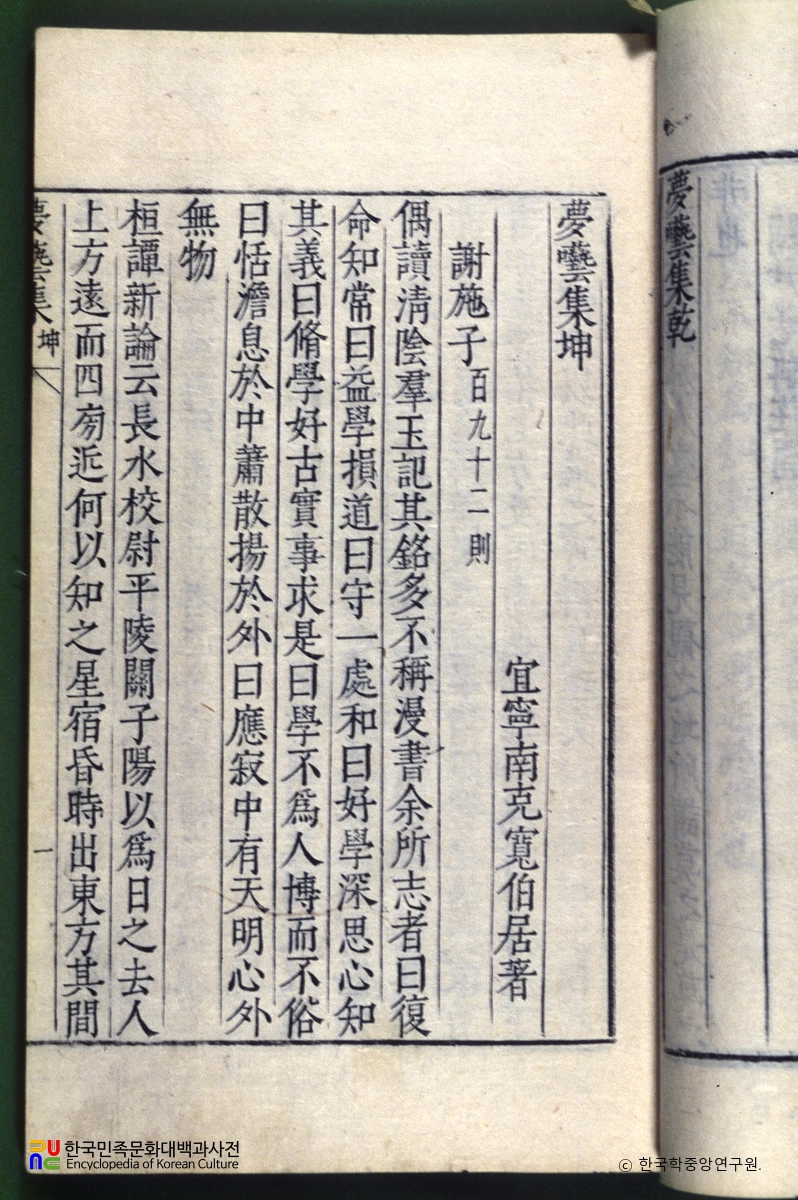 夢囈集乾
夢囈集坤
宜寧南克寬伯居著
謝施子百九十二則
偶讀淸陰羣玉記其銘多不稱漫書余所志者曰復
命知常曰益學損道曰守一處和曰好學深思心知
其義曰脩學好古實事求是曰學不爲人博而不俗
曰恬澹息於中蕭散揚於外曰應寂中有天明心外
無物
桓譚新論云長水校尉平陵關子陽以爲日之去人
上方遠而四旁近何以知之星宿昏時出東方其間
夢囈集 坤
一
한국민족문화대백과사전
Encyclopedia of Korean Culture
© 한국학중앙연구원.